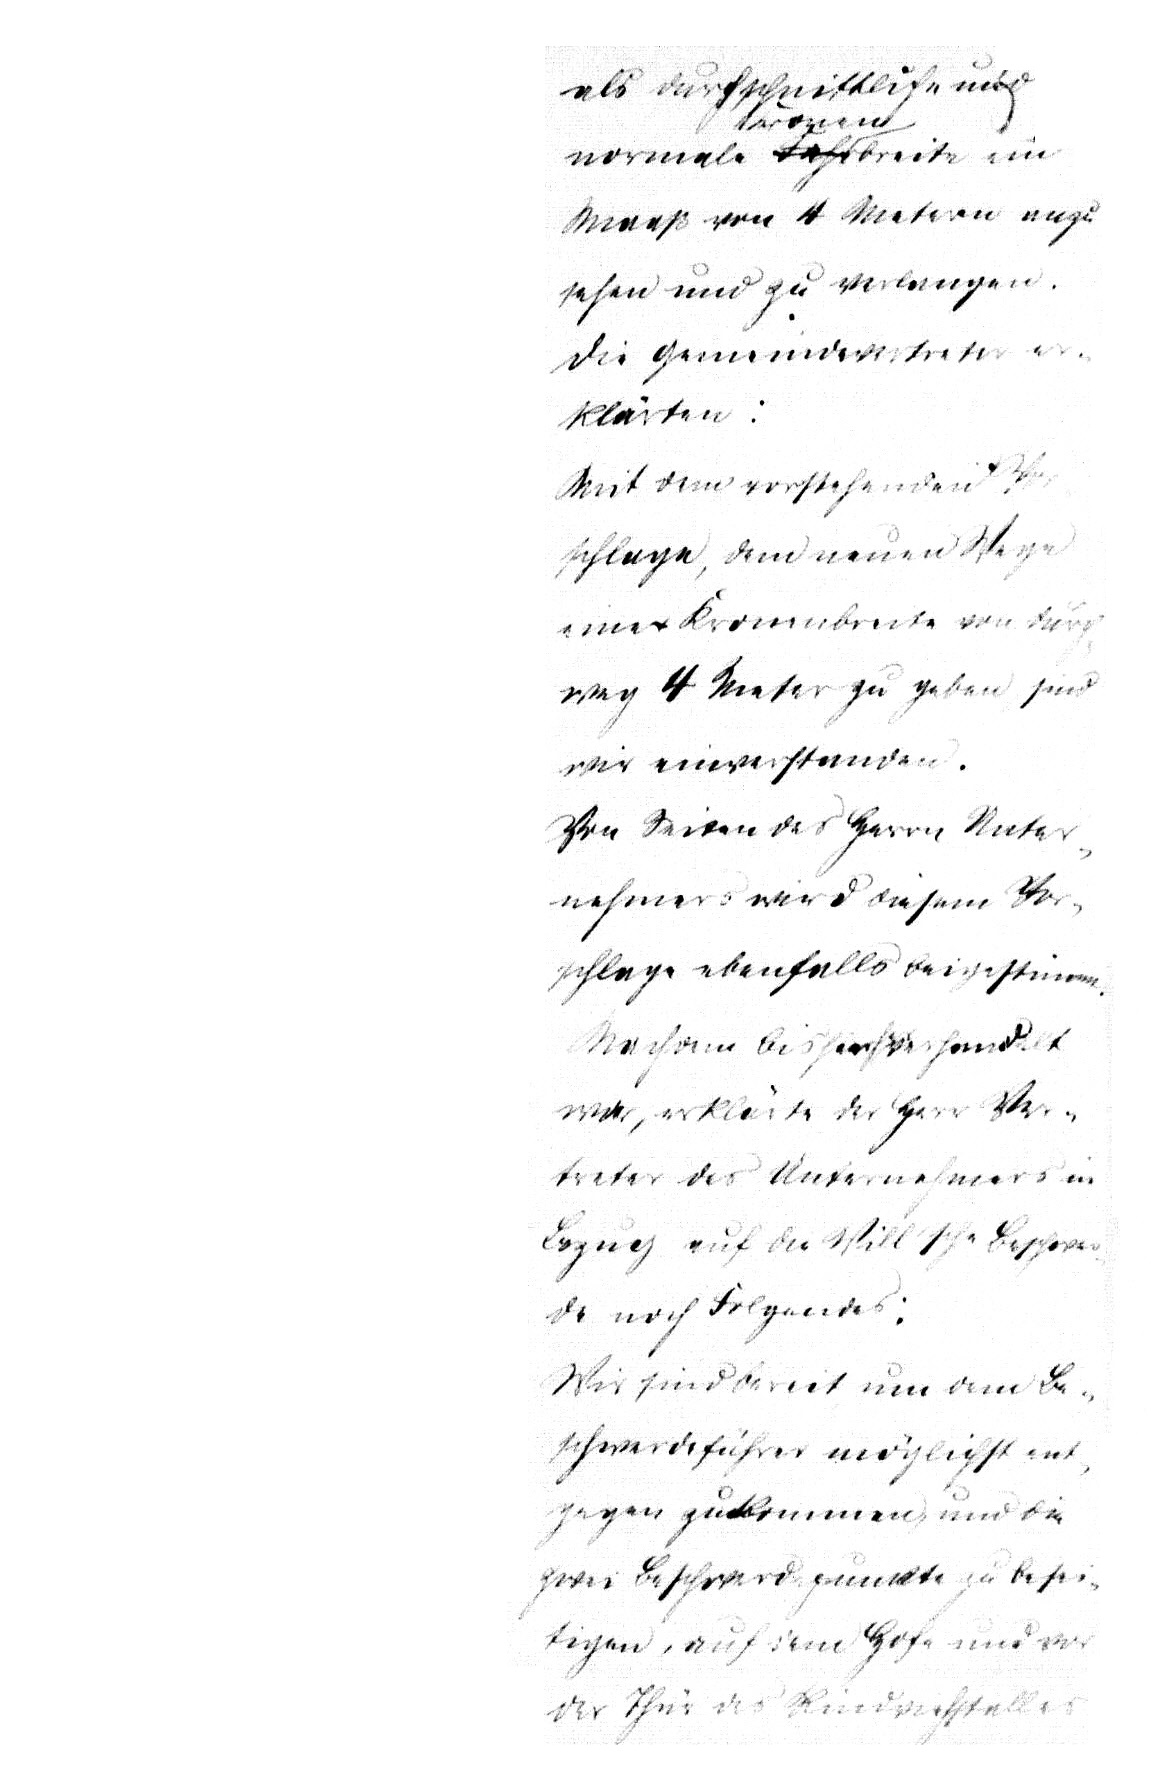 als durchschnittliche und
kronen
normale Fahrbreite ein
Maaß von 4 Metern anzu
sehen und zu verlangen.
Die Gemeindevertreter er-
klärten:
Mit dem vorstehenden Vor
schlage, dem neuen Wege
eine Kronenbreite von durch-
weg 4 Meter zu geben sind
wir einverstanden.
Von Seiten des Herrn Unter-
nehmers wird diesem Vor-
schlage ebenfalls beigestimmt.
Nachdem bisher verhandelt
war, erklärte der Herr Ver-
treter des Unternehmers in
Bezug auf die Will'sche Beschwer-
de noch Folgendes:
Wir sind bereit um dem Be-
schwerdeführer möglichst ent-
gegen zu kommen, und die
zwei Beschwerdepunkte zu besei-
tigen, auf dem Hofe und vor
der Thür des Rindviehstalles